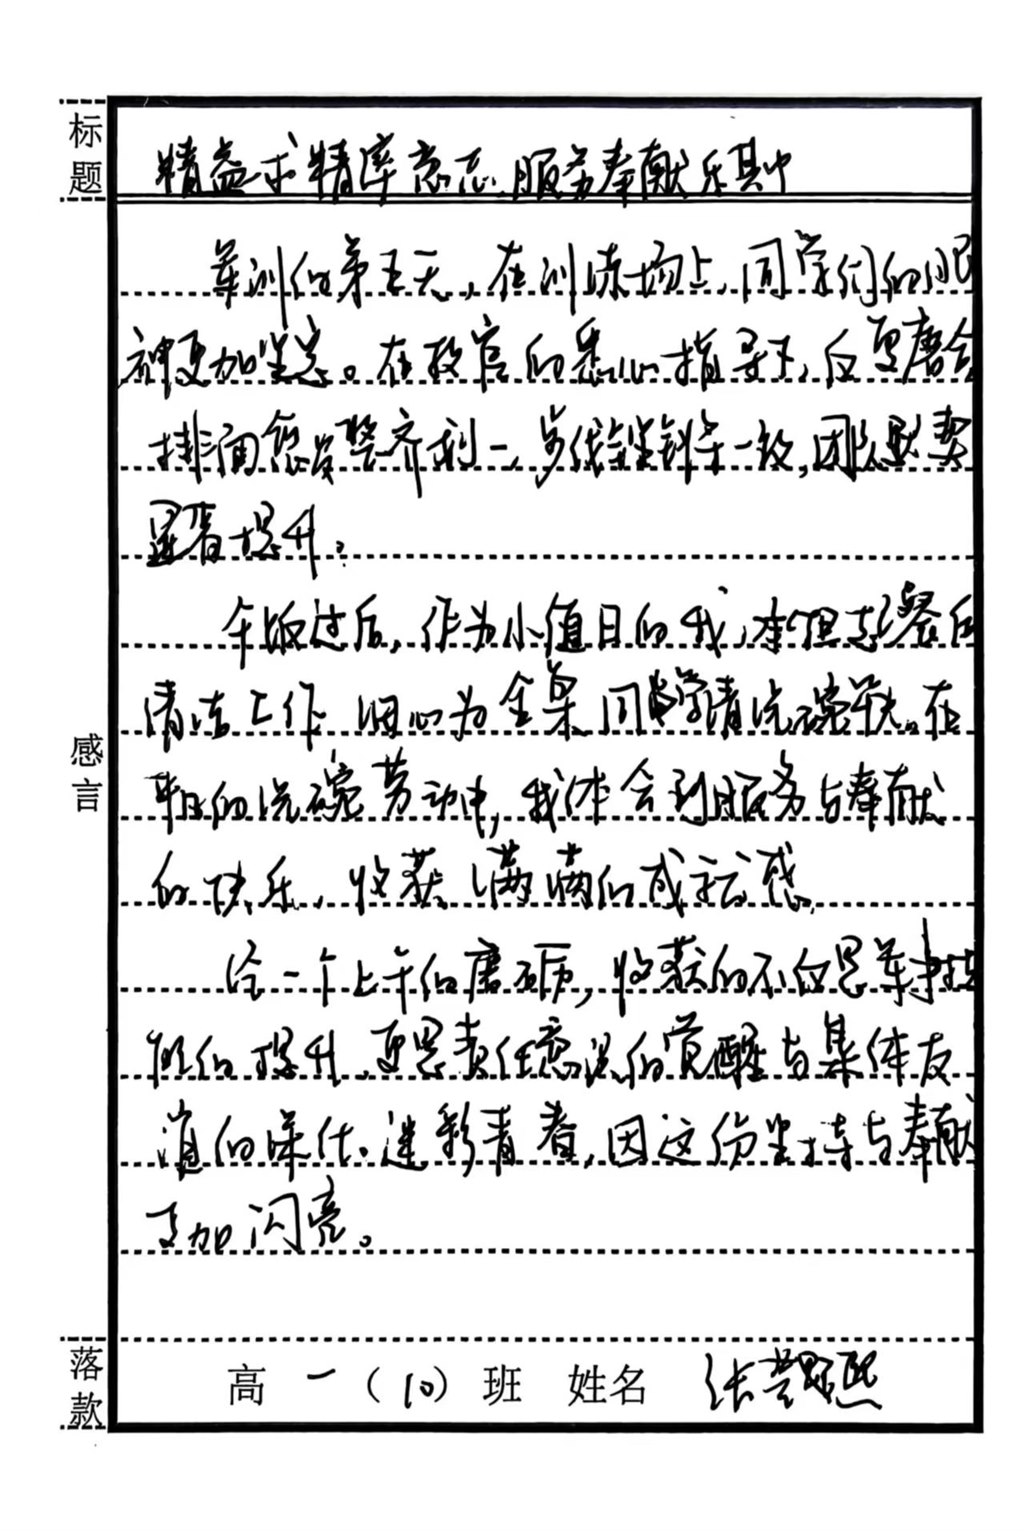 标题
精益求精率意志,服务奉献乐其中
军训的第五天,在训练场上,同学们的眼
神更加坚定。在教官的悉心指导下,反更磨合
排面愈发整齐利一,步伐铿锵一致,团队默契
显著提升。
午饭过后,作为小值日的我,承担起餐后
清洁工作,细心为全桌同学清洗碗筷。在
的洗碗劳动中,我体会到服务与奉献
的快乐,收获满满的成就感。
感言
经一个上午的磨砺,收获的不仅是军事技
能的提升,更是责任意识的觉醒与集体友
谊的深化。迷彩青春,因这份坚持与奉献
更加闪亮。
落款
高一(10)班 姓名 张 熙